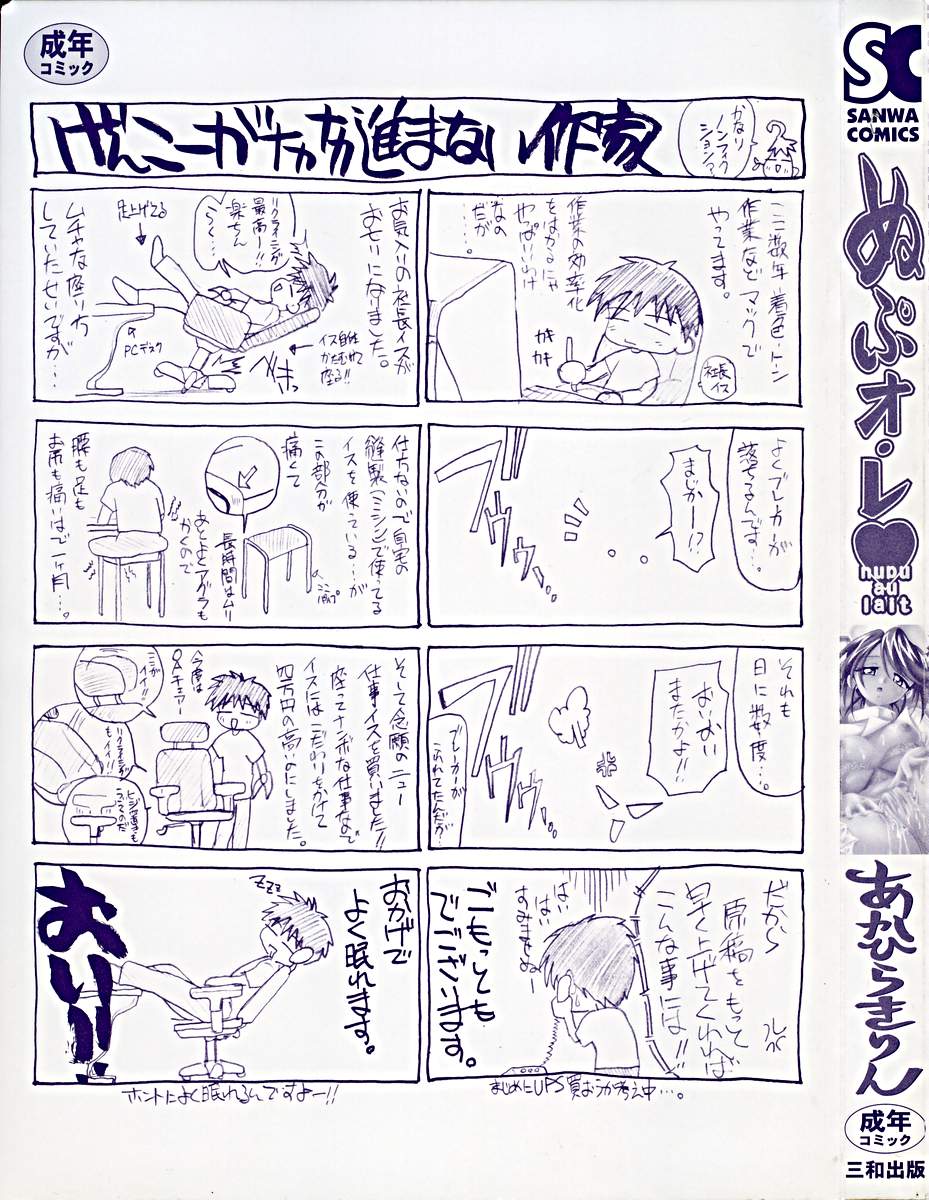 成年
コミック
げんこーがナカナカ進まない作家
かなり
ノンフィク
ションァ
ここ数年着色・トン
作業など マックで
やってます。
作業の効率化
をはかるにゃ
やっぱいいわけ
なの
だが
……。
カキ
カキ
社長
イス
よくブレーカーが
落ちてるんです…。
まじかー!?
ブッ
それも
日に数度…。
おいおい
またかよ!!
ブッ
ブレーカーが
だから
原稿をもって
早く上げてくれれば
こんな事には!!
はい
はい
すみませ
ごもっとも
でございます。
まじめにUPS買おうか考え中…。
お気入りの社長イスが
おもりになりました。
リクライニングが
最高〜!!
楽ちん
足上げてる
PCデスク
イス自体
かたむけて
座る!!
ムチャな座り方
していたせいですが…
仕方ないので自宅の
縫製(ミシン)で使ってる
イスを使っている…が
この部分が
痛くて
長時間はムリ
あとよくアグラも
かくので
腰も足も
お尻も痛いほで一ヶ月…。
そして念願のニュー
仕事イスを買いました!!
座ってナンボな仕事なので
イスには二だわりをかけて
四万円の高いのにしました。
今度は
OAチェアー
ここが
イイ!!
リクライニングが
もイイ!!
ヒジ置きも
おかげで
よく眠れます。
ZZZ
おい!!
ホントによく眠れるんですよー!!
SC
SANWA
COMICS
ぬぷオ・レ
nupu
au
lait
あかひらきりん
成年
コミック
三和出版